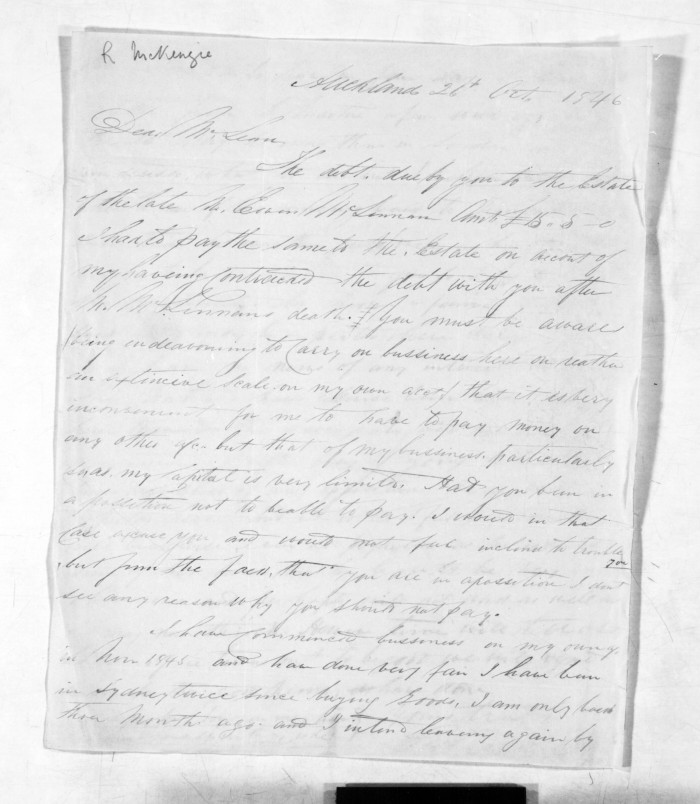 R McKenzie
Auckland 26th Oct 1846
Dear McLean
The debt, due by you to the Estate
of the late Mr. Ewen McLennan Amt £15-5-0
I had to pay the same to the Estate on account of
my haveing Contracted the debt with you after
Mr. McLennans death. You must be aware
(being endeavouring to Carry on bussiness here on reather
an extencive scale on my own acct) that it is very
inconvenient for me to have to pay money on
any other a/c but that of my bussiness, particularly
so as my Capital is very limited. Had you been in
a possetion not to be able to pay. I would in that
Case excuse you and would not feel inclined to trouble you
but from the fact, that you are in a possetion I dont
see any reason why you should not pay.
I have Commenced bussiness on my own
in Novr 1845 and have done very fair I have been
in Sydney twice since buying Goods, I am only back
three Month ago and I intend leaveing again by